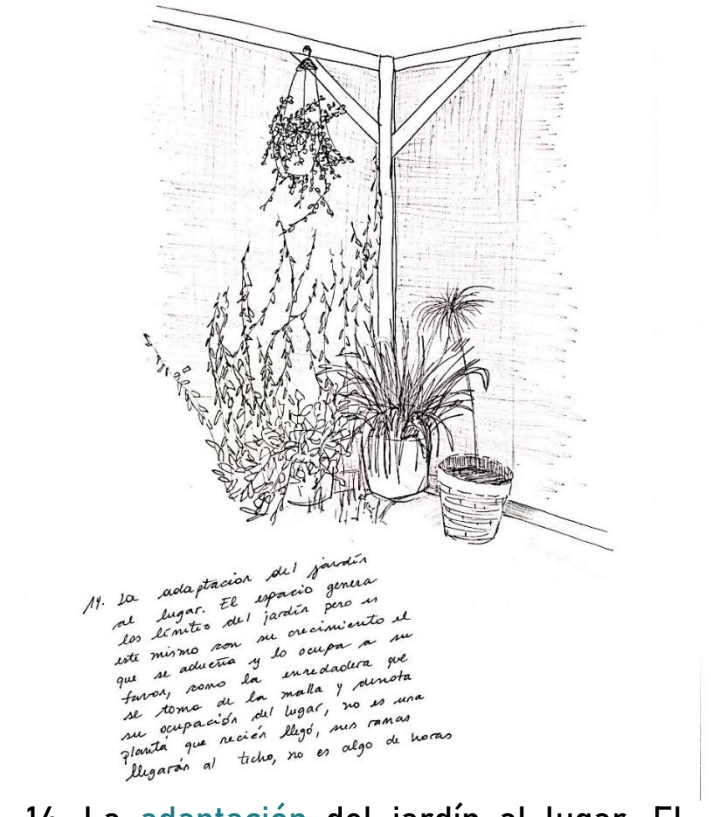 14. La adaptación del jardín
al lugar. El espacio genera
los límites del jardín pero es
este mismo con su crecimiento el
que se adueña y lo ocupa a su
favor, como la enredadera que
se toma de la malla y denota
su ocupación del lugar, no es una
planta que recién llegó, sus ramas
llegarán al techo, no es algo de horas
14. La adaptación del jardín al lugar. El